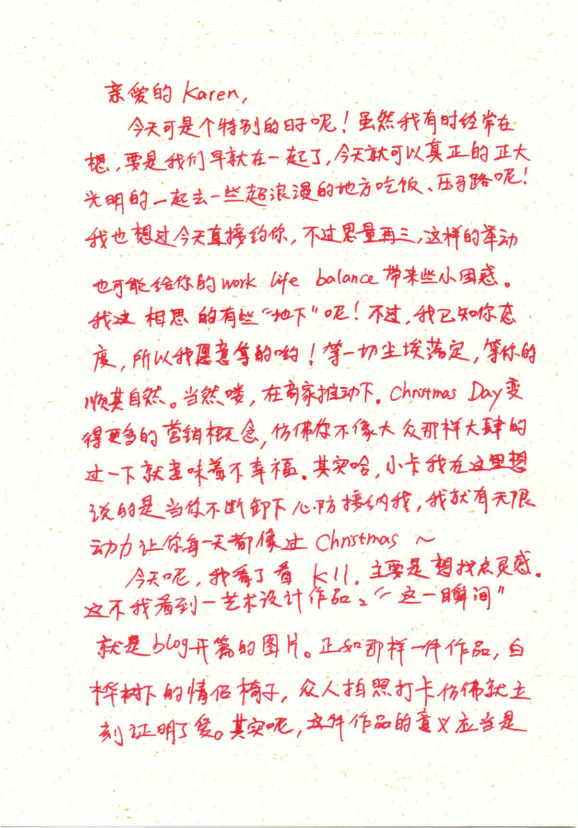 亲爱的 Karen,
今天可是个特别的日子呢！虽然我有时经常在
想，要是我们早就在一起了，今天就可以真正的正大
光明的一起去一些超浪漫的地方吃饭、压马路呢！
我也想过今天直接约你，不过思量再三，这样的举动
也可能给你的work life balance带来些小困惑。
我这 相思的有些“地下”呢！不过，我已知你态
度，所以我愿意等的哟！等一切尘埃落定，等你的
顺其自然。当然喽，在商家推动下，Christmas Day变
得更多的营销概念，仿佛你不像大众那样大肆的
过一下就意味着不幸福。其实哈，小卡我在这里想
说的是当你不断卸下心防接纳我，我就有无限
动力让你每一天都像过 Christmas ～
今天呢，我看了看 K11，主要是想找点灵感。
这不我看到一艺术设计作品，“这一瞬间”
就是blog开篇的图片。正如那样一件作品，白
桦树下的情侣椅子，众人拍照打卡仿佛就立
刻证明了爱。其实呢，这件作品的意义应当是